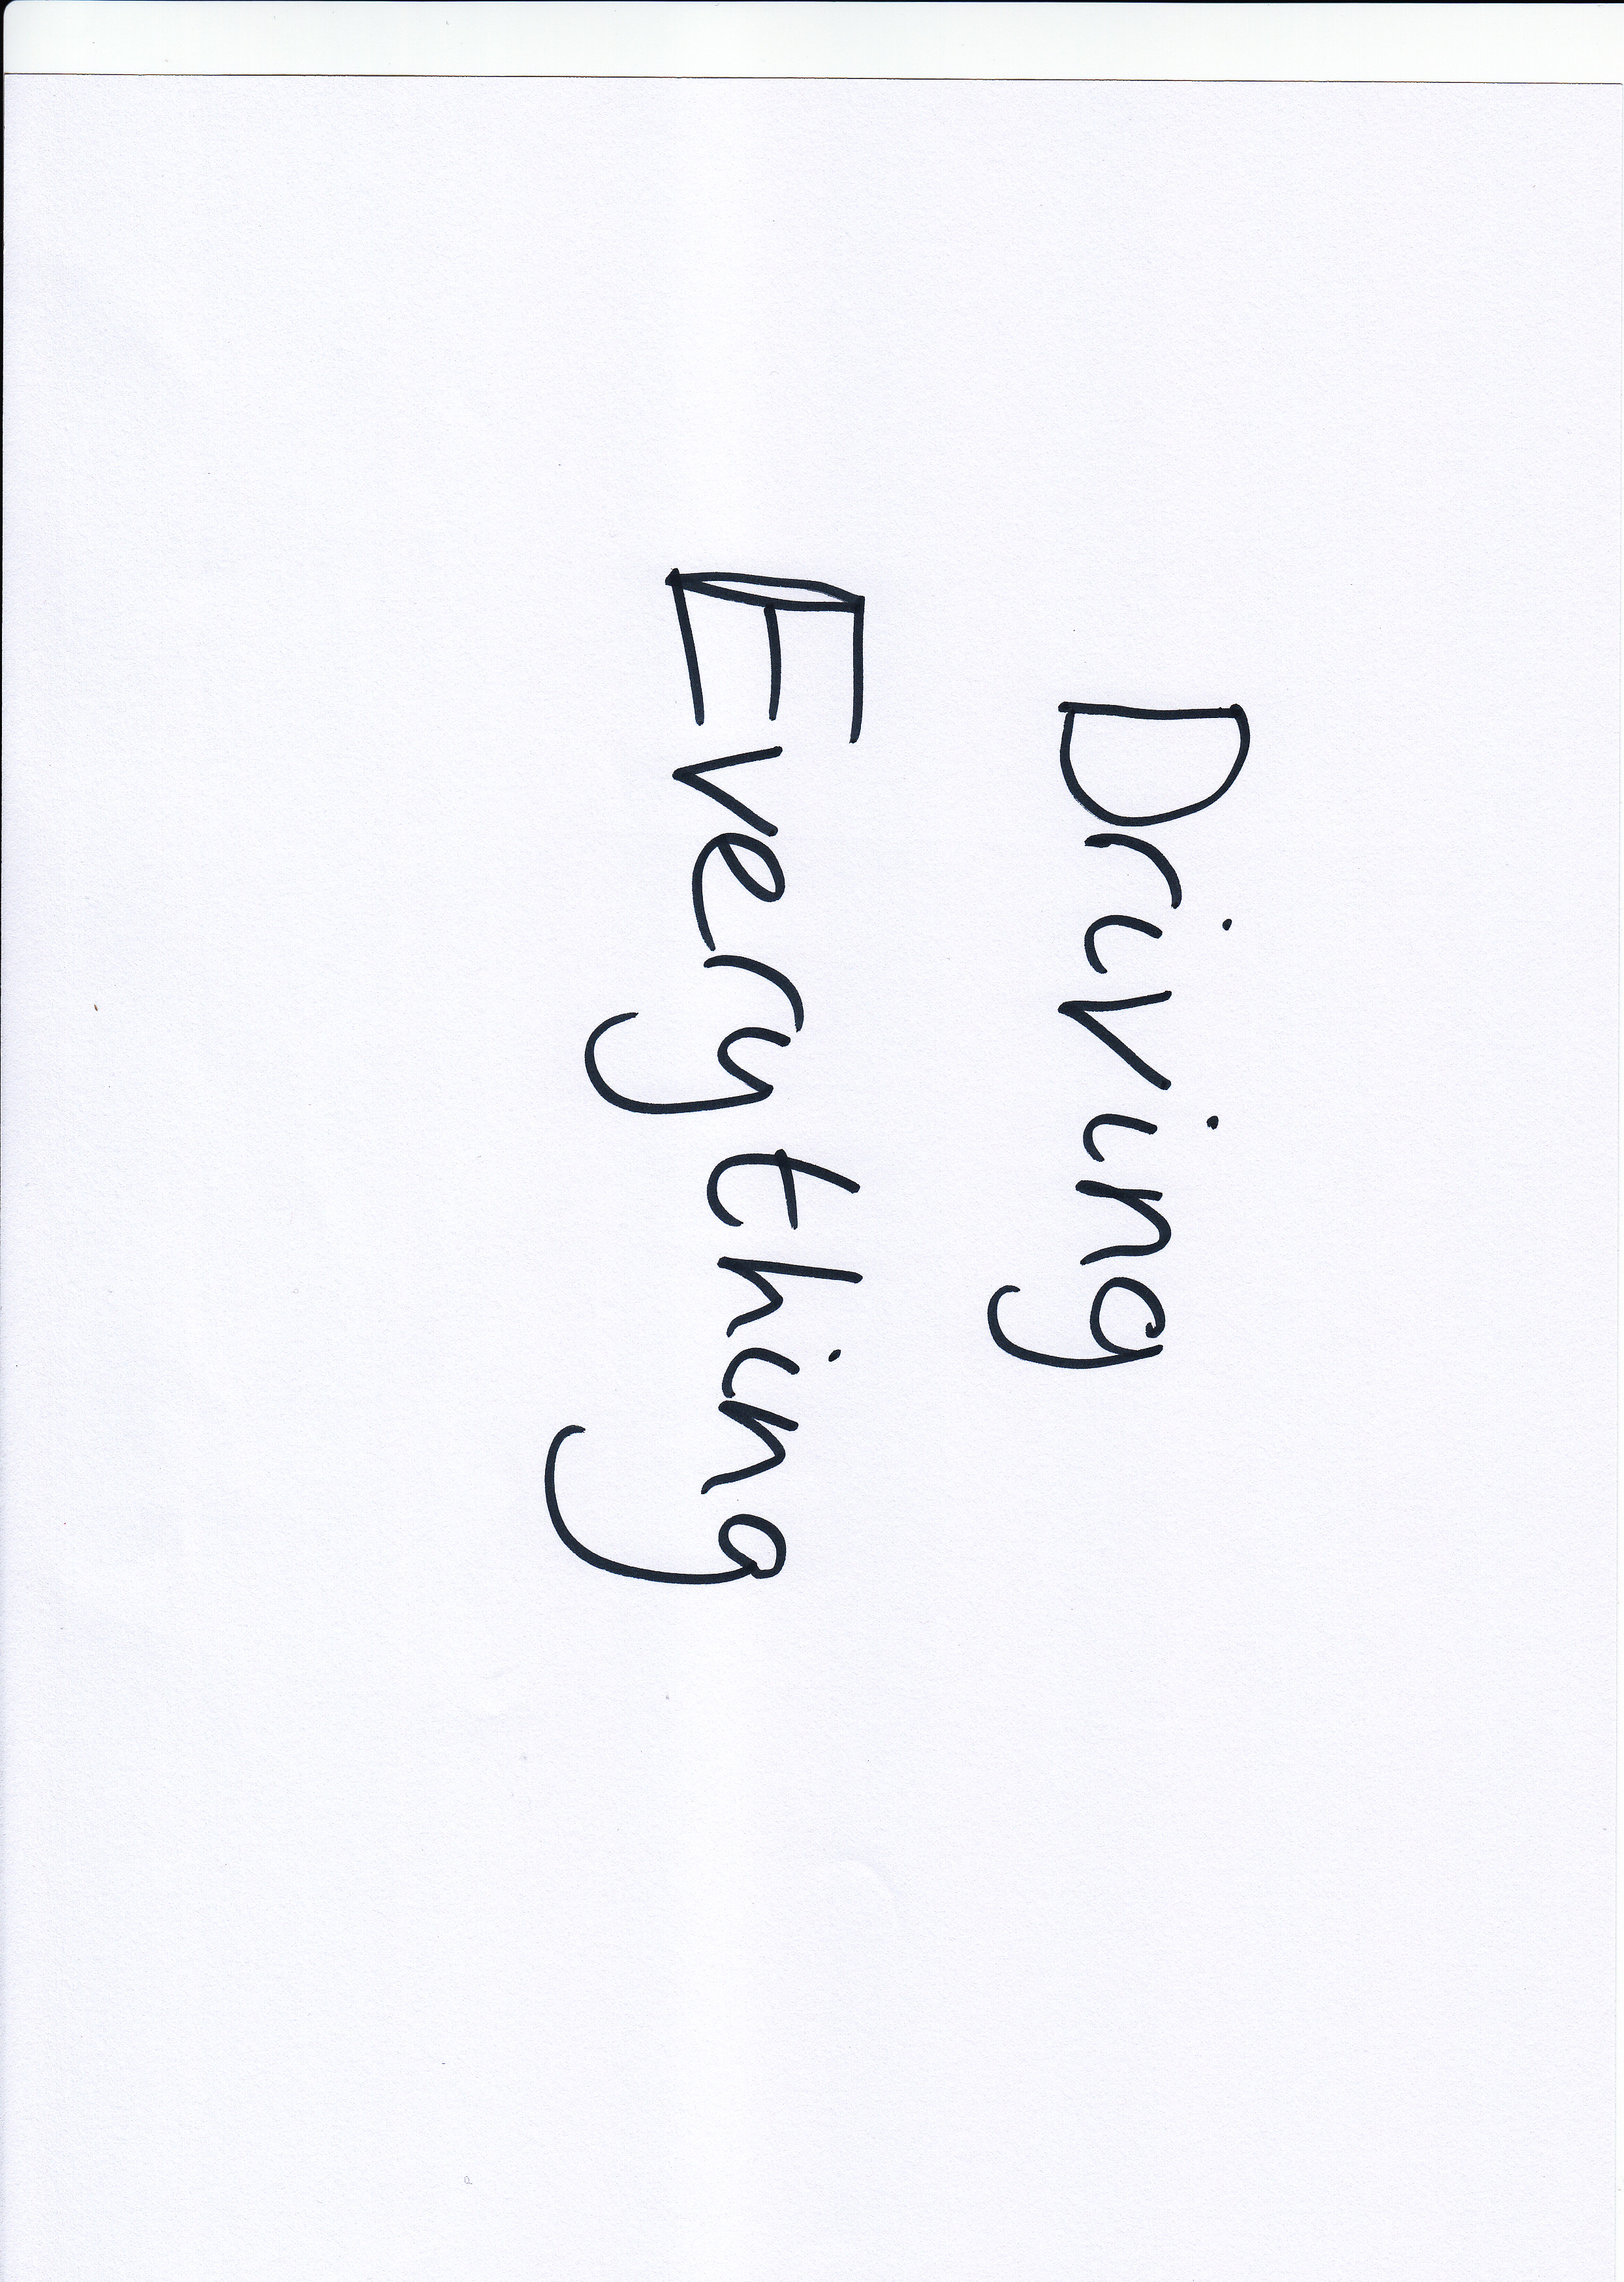 Driving
Everything